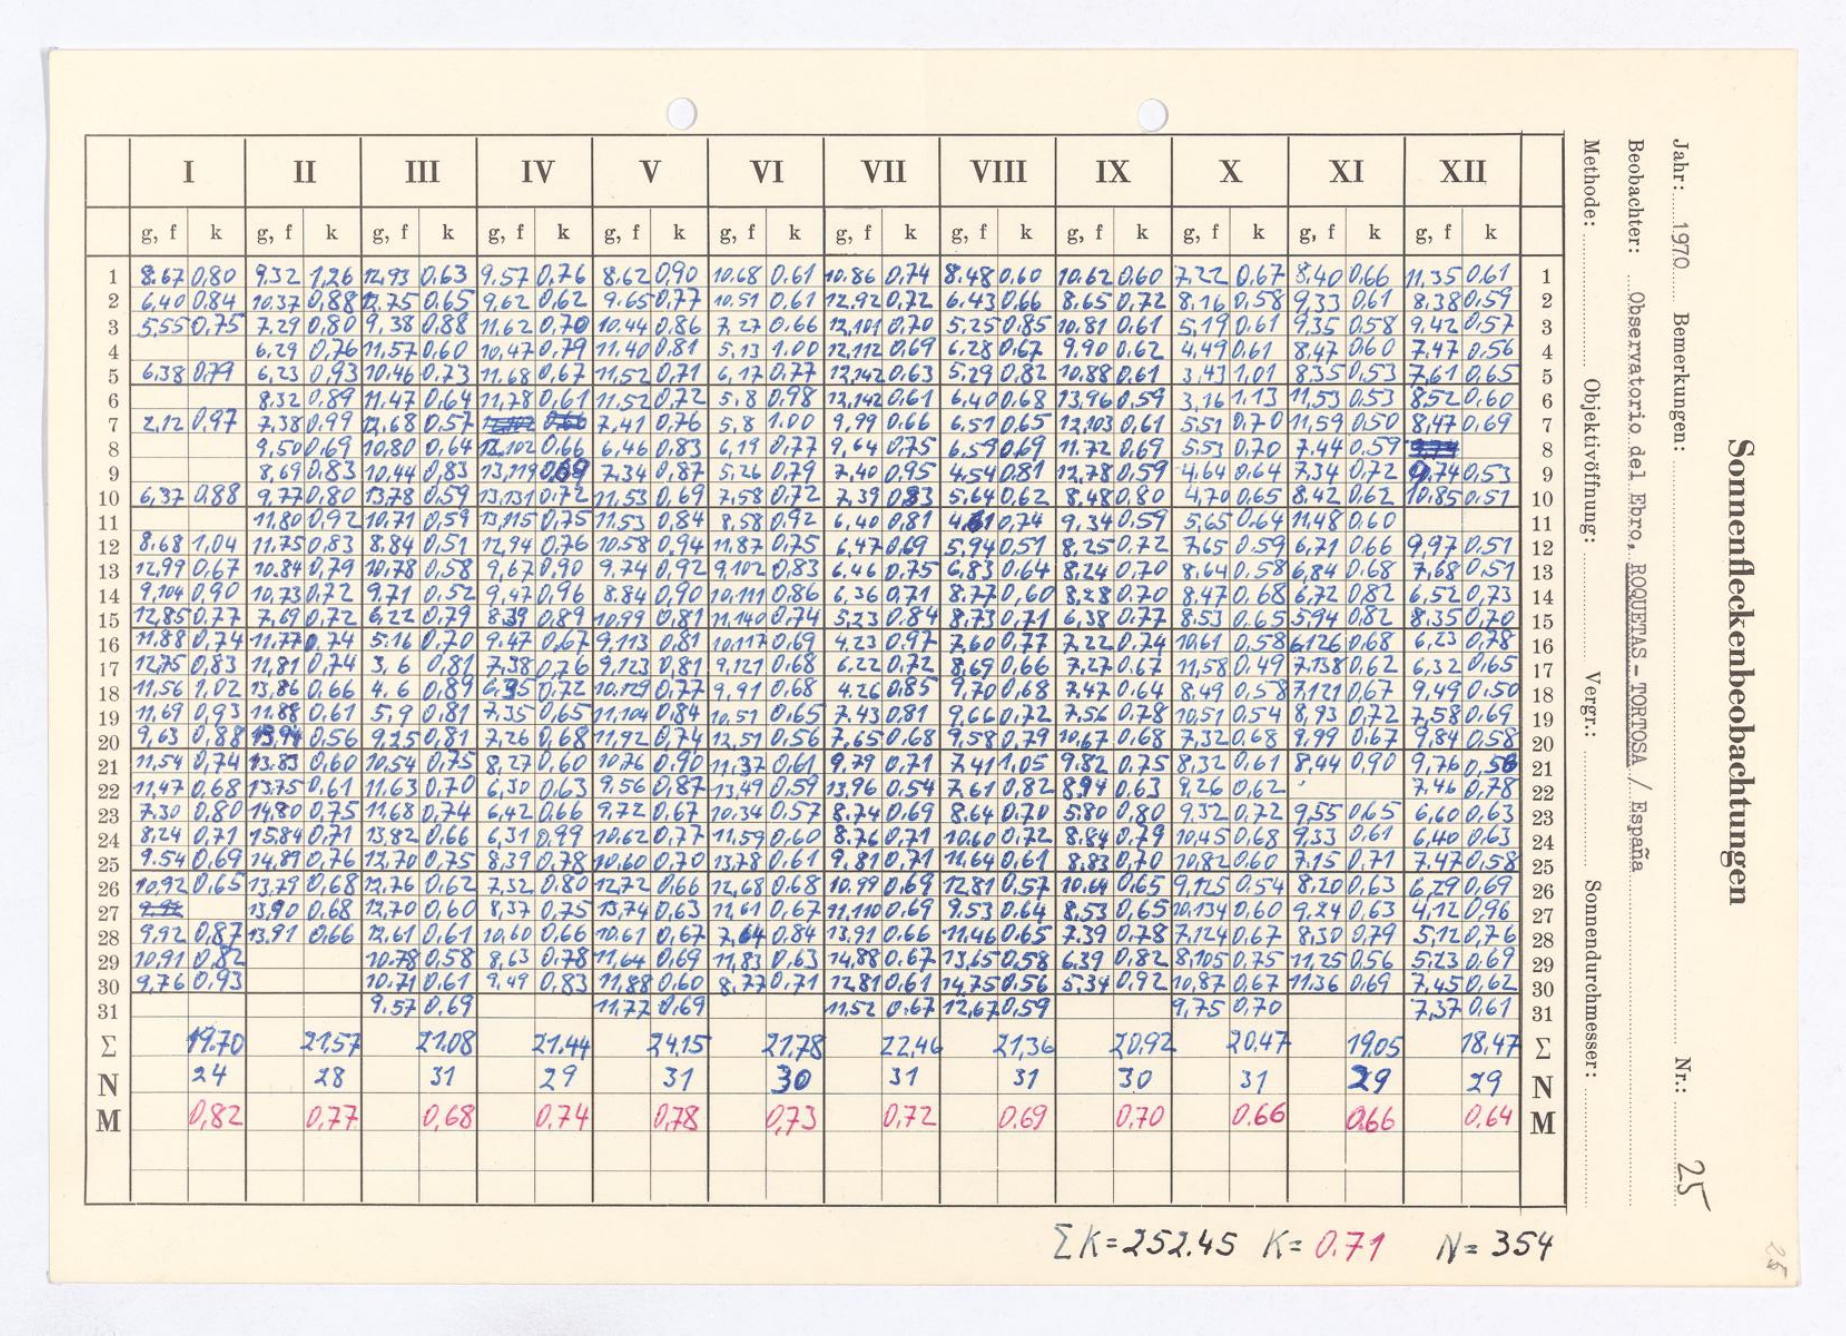 I II III IV V VI VII VIII IX X XI XII
g, f k g, f k g, f k g, f k g, f k g, f k g, f k g, f k g, f k g, f k g, f k g, f k
1 8.67 0,80 9,32 1,26 12,93 0,63 9,57 0,76 8,62 0,90 10,68 0,61 10.86 0,74 8.48 0,60 10,62 0,60 7,22 0,67 8,40 0,66 11,35 0,61 1
2 6,40 0,84 10,37 0,88 12,75 0,65 9,62 0,62 9,65 0,77 10,51 0,61 12,92 0,72 6,43 0,66 8,65 0,72 8,16 0,58 9,33 0,61 8,38 0,59 2
3 5,55 0,75 7,29 0,80 9,38 0,88 11,62 0,70 10,44 0,86 7,27 0,66 12,101 0,70 5,25 0,85 10,81 0,61 5,19 0,61 9,35 0,58 9,42 0,57 3
4 6,29 0,76 11,57 0,60 10,47 0,79 11,40 0,81 5,13 1.00 12,112 0,69 6,28 0,67 9,90 0,62 4,49 0,61 8,47 0,60 7,47 0,56 4
5 6,38 0,79 6,23 0,93 10,46 0,73 11,68 0,67 11,52 0,71 6,17 0,77 12,142 0,63 5,29 0,82 10,88 0,61 3,43 1,01 8,35 0,53 7,61 0,65 5
6 8,32 0,89 11,47 0,64 11,78 0,61 11,52 0,72 5,8 0,98 12,142 0,61 6,40 0,68 13,96 0,59 3,16 1.13 11,53 0,53 8,52 0,60 6
7 2,12 0,97 7,38 0,99 12,68 0,57 7,41 0,76 5,8 1.00 9,99 0,66 6,51 0,65 12,103 0,61 5,51 0,70 11,59 0,50 8,47 0,69 7
8 9,50 0,69 10,80 0,64 12,102 0,66 6,46 0,83 6,19 0,77 9,64 0,75 6,59 0,69 11,72 0,69 5,53 0,70 7,44 0,59 8
9 8,69 0,83 10,44 0,83 13,119 0,69 7,34 0,87 5,26 0,79 7,40 0,95 4,54 0,81 12,78 0,59 4,64 0,64 7,34 0,72 9,74 0,53 9
10 6,37 0,88 9,77 0,80 13,78 0,59 13,131 0,72 11,53 0,69 7,58 0,72 7,39 0,83 5,64 0,62 8,48 0,80 4,70 0,65 8,42 0,62 10,85 0,51 10
11 11,80 0,92 10,71 0,59 13,115 0,75 11,53 0,84 8,58 0,92 6,40 0,81 4,61 0,74 9,34 0,59 5,65 0,64 11,48 0,60 11
12 8,68 1,04 11,75 0,83 8,84 0,51 12,94 0,76 10,58 0,94 11,87 0,75 6,47 0,69 5,94 0,51 8,25 0,72 7,65 0,59 6,71 0,66 9,97 0,51 12
13 12,99 0,67 10,84 0,79 10,78 0,58 9,67 0,90 9,74 0,92 9,102 0,83 6,46 0,75 6,83 0,64 8,24 0,70 8,64 0,58 6,84 0,68 7,68 0,51 13
14 9,104 0,90 10,73 0,72 9,71 0,52 9,47 0,96 8,84 0,90 10,111 0,86 6,36 0,71 8,77 0,60 8,28 0,70 8,47 0,68 6,72 0,82 6,52 0,73 14
15 12,85 0,77 7,69 0,72 6,22 0,79 8,39 0,89 10,99 0,81 11,140 0,74 5,23 0,84 8,73 0,71 6,38 0,77 8,53 0,65 5,94 0,82 8,35 0,70 15
16 11,88 0,74 11,77 0,74 5,16 0,70 9,47 0,67 9,113 0,81 10,117 0,69 4,23 0,97 7,60 0,77 7,22 0,74 10,61 0,58 6,126 0,68 6,23 0,78 16
17 12,75 0,83 11,81 0,74 3,6 0,81 7,38 0,76 9,123 0,81 9,121 0,68 6,22 0,72 8,69 0,66 7,27 0,67 11,58 0,49 7,138 0,62 6,32 0,65 17
18 11,56 1,02 13,86 0,66 4,6 0,89 6,35 0,72 10,129 0,77 9,91 0,68 4,26 0,85 9,70 0,68 7,47 0,64 8,49 0,58 7,121 0,67 9,49 0,50 18
19 11,69 0,93 11,88 0,61 5,9 0,81 7,35 0,65 11,104 0,84 10,51 0,65 7,43 0,81 9,66 0,72 7,56 0,78 10,51 0,54 8,93 0,72 7,58 0,69 19
20 9,63 0,88 13,94 0,56 9,25 0,81 7,26 0,68 11,92 0,74 12,51 0,56 7,65 0,68 9,58 0,79 10,67 0,68 7,32 0,68 9,99 0,67 9,84 0,58 20
21 11,54 0,74 13,83 0,60 10,54 0,75 8,27 0,60 10,76 0,90 11,37 0,61 9,79 0,71 7,41 1.05 9,82 0,75 8,32 0,61 8,44 0,90 9,76 0,56 21
22 11,47 0,68 13,75 0,61 11,63 0,70 6,30 0,63 9,56 0,87 13,49 0,59 13,96 0,54 7,61 0,82 8,94 0,63 9,26 0,62 7,46 0,78 22
23 7,30 0,80 14,80 0,75 11,68 0,74 6,42 0,66 9,72 0,67 10,34 0,57 8,74 0,69 8,64 0,70 5,80 0,80 9,32 0,72 9,55 0,65 6,60 0,63 23
24 8,24 0,71 15,84 0,71 13,82 0,66 6,31 0,99 10,62 0,77 11,59 0,60 8,76 0,71 10,60 0,72 8,84 0,79 10,45 0,68 9,33 0,61 6,40 0,63 24
25 9,54 0,69 14,89 0,76 12,70 0,75 8,39 0,78 10,60 0,70 13,78 0,61 9,81 0,71 11,64 0,61 8,83 0,70 10,82 0,60 7,15 0,71 7,47 0,58 25
26 10,92 0,65 13,79 0,68 12,76 0,62 7,32 0,80 12,72 0,66 12,68 0,68 10,99 0,69 12,81 0,57 10,64 0,65 9,125 0,54 8,20 0,63 6,29 0,69 26
27 13,90 0,68 12,70 0,60 8,37 0,75 13,74 0,63 12,61 0,67 11,110 0,69 9,53 0,64 8,53 0,65 10,134 0,60 9,24 0,63 4,12 0,96 27
28 9,92 0,87 13,91 0,66 12,61 0,61 10,60 0,66 10,61 0,67 7,64 0,84 13,91 0,66 11,46 0,65 7,39 0,78 7,124 0,67 8,30 0,79 5,12 0,76 28
29 10,91 0,82 10,78 0,58 8,63 0,78 11,64 0,69 11,83 0,63 14,88 0,67 13,65 0,58 6,39 0,82 8,105 0,75 11,25 0,56 5,23 0,69 29
30 9,76 0,93 10,71 0,61 9,49 0,83 11,88 0,60 8,77 0,71 12,81 0,61 14,75 0,56 5,34 0,92 10,87 0,67 11,36 0,69 7,45 0,62 30
31 9,57 0,69 11,77 0,69 11,52 0,67 12,67 0,59 9,75 0,70 7,37 0,61 31
Σ 19.70 21,57 21.08 21.44 24,15 21,78 22,46 21,36 20,92 20,47 19,05 18,47 Σ
N 24 28 31 29 31 30 31 31 30 31 29 29 N
M 0,82 0,77 0,68 0,74 0,78 0,73 0,72 0.69 0,70 0.66 0.66 0.64 M
ΣK = 252.45 K = 0.71 N = 354
Sonnenfleckenbeobachtungen
Jahr: 1970 Bemerkungen: Nr.: 25
Beobachter: Observatorio del Ebro, ROQUETAS - TORTOSA / España
Methode: Objektivöffnung: Vergr.: Sonnendurchmesser:
25